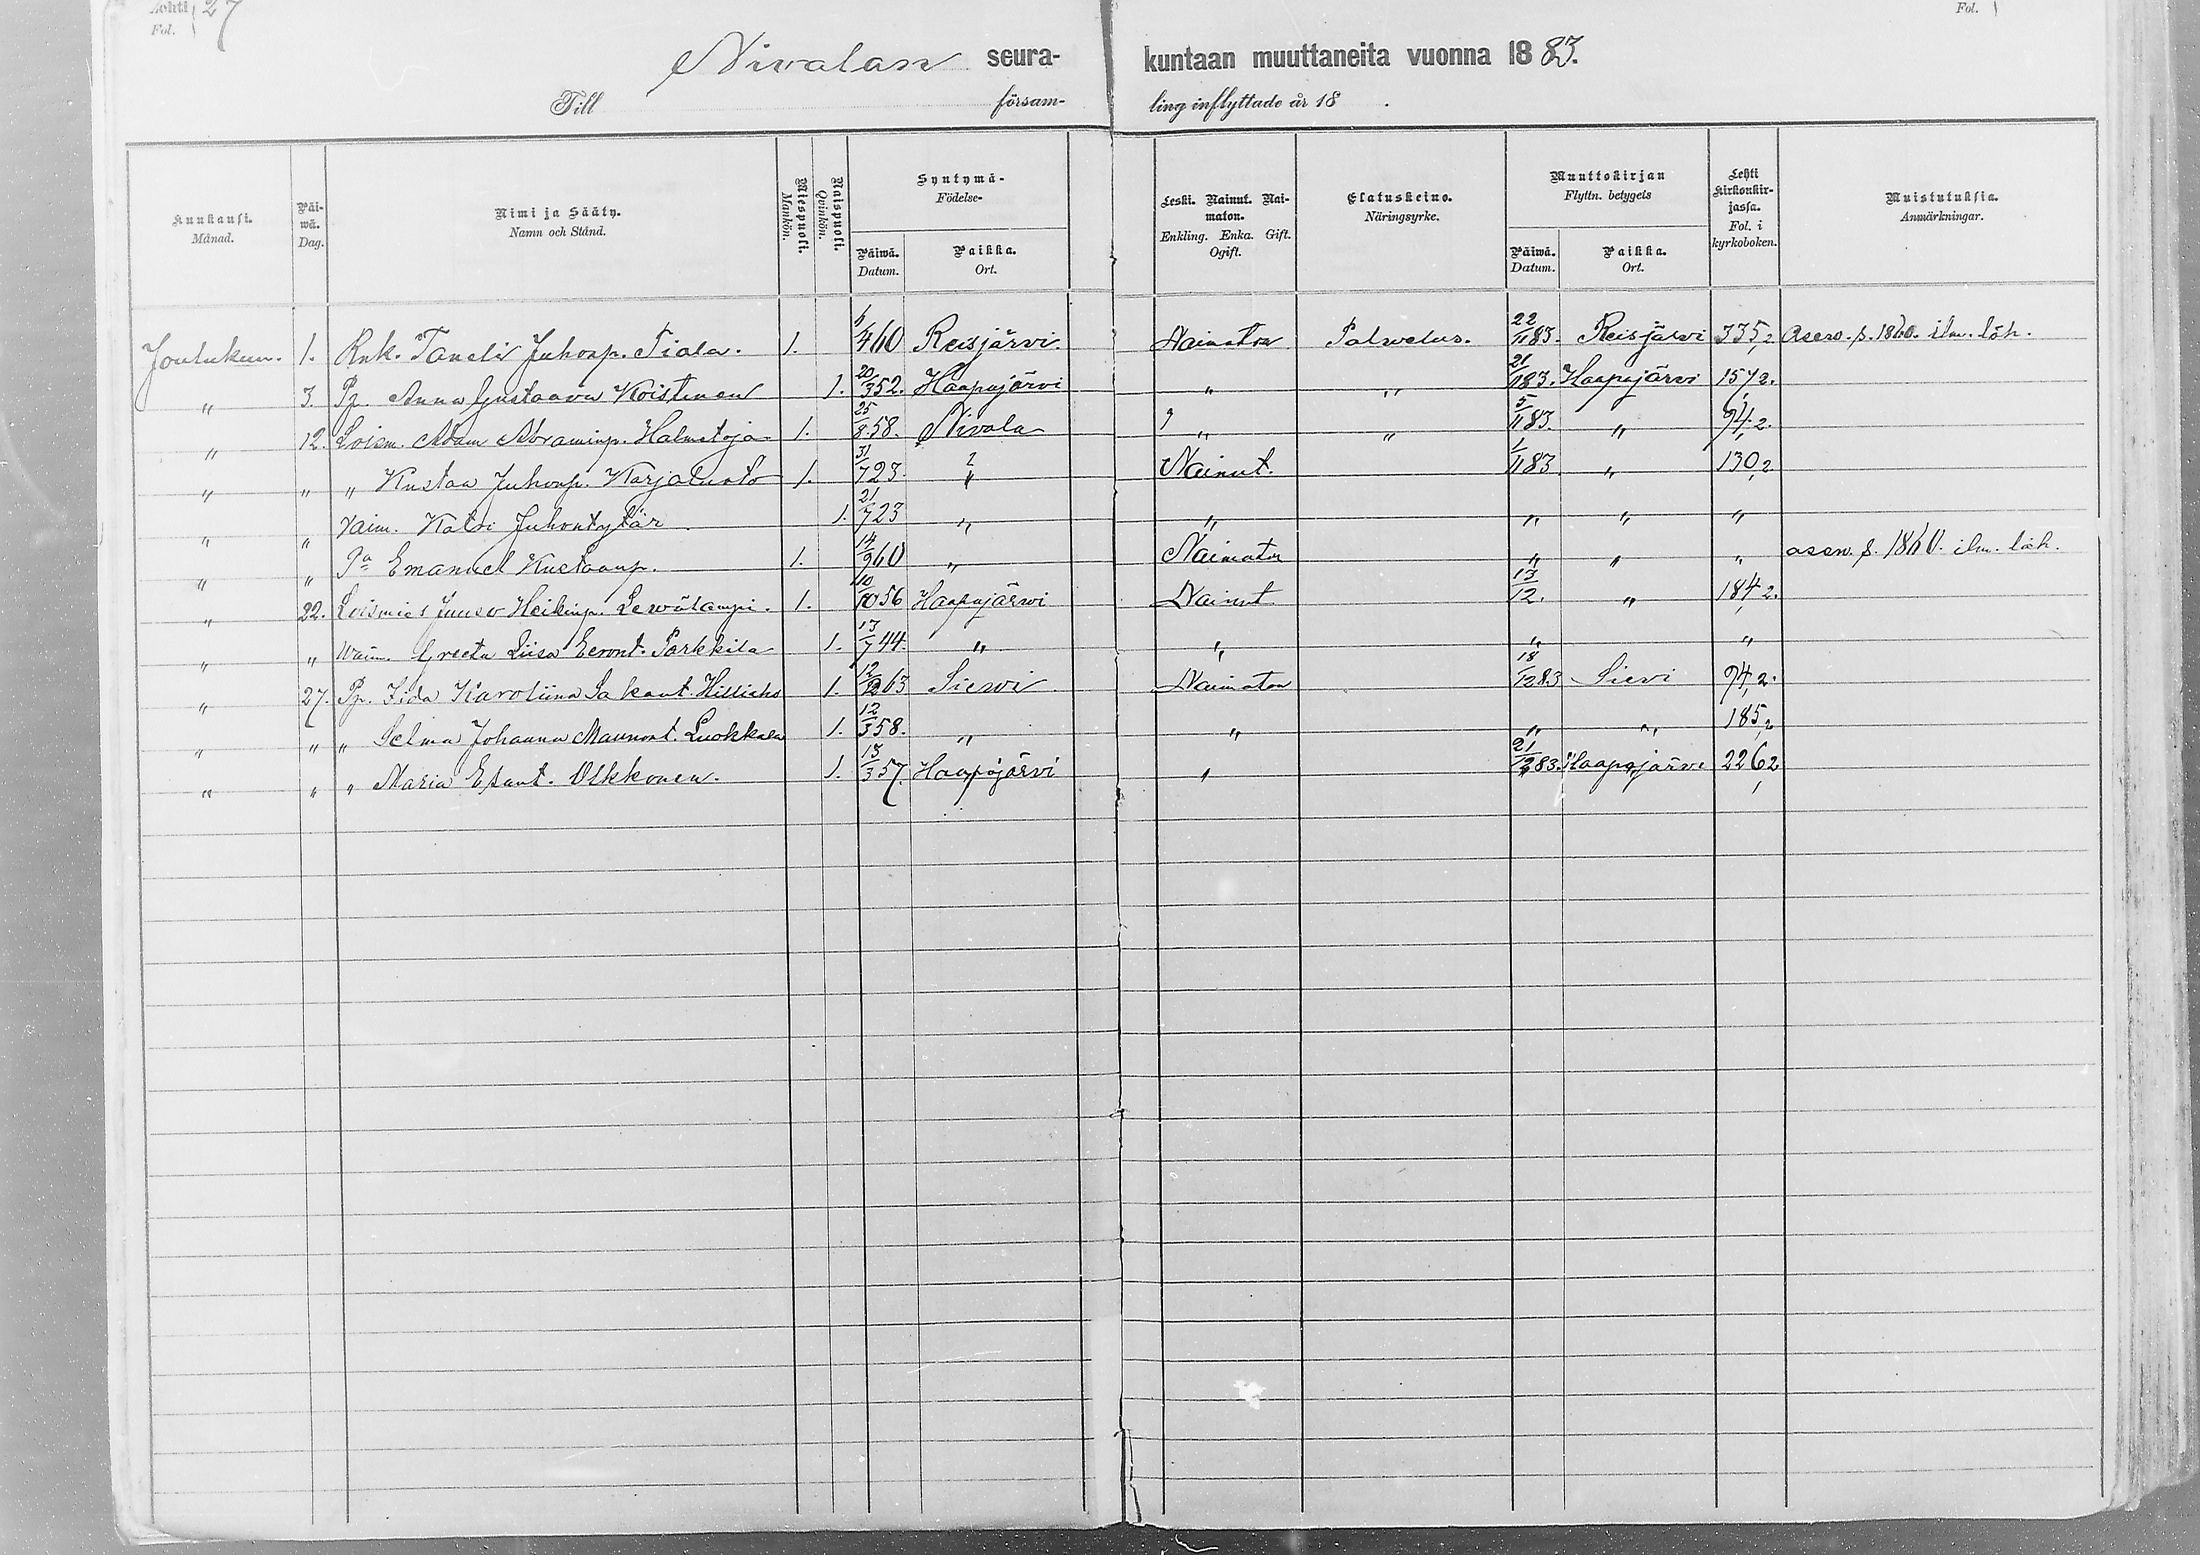 Lehti 27
Fol.
Fol.
Nivalan seura- kuntaan muuttaneita vuonna 1883.
Till försam- ling inflyttade år 18 .
Kuukausi. Månad.
Päi-wä. Dag.
Nimi ja Sääty. Namn och Stånd.
Miespuoli. Mankön.
Naispuoli. Qvinkön.
Syntymä- Födelse-
Päiwä. Datum.
Paikka. Ort.
Leski. Nainut. Nai-maton. Enkling. Enka. Gift. Ogift.
Elatuskeino. Näringsyrke.
Muuttokirjan Flyttn. betygets
Päiwä. Datum.
Paikka. Ort.
Lehti kirkonkir-jassa. Fol. i kyrkoboken.
Muistutuksia. Anmärkningar.
Joulukuu. 1. Rnk. Taneli Juhonp. Tiala. 1. 460 Reisjärvi. Naimaton Palwelus. 22/11 83. Reisjärvi 335,2 asew. s. 1860. ilm. läh.
" 3. Pg. Anna Gustaava Koistinen 1. 20/3 52. Haapajärvi " " 21/11 83. Haapajärvi 157,2.
" 12. Loism. Adam Abraminp. 1. 25/8 58. Nivala " " 5/11 83. " 94,2.
" " " Kustaa Juhonp. Karjalusto 1. 31/7 23. " Nainut. 1/11 83 " 130,2
" " Vaim. Katri Juhontytär 1. 21/7 23 " " " " "
" " Pa Emanuel Kustaanp. 1. 14/9 60 " Naimaton " " " asew. s. 1860. ilm. läh.
" 22. Loismies Juuso Heikinp. Lewälampi. 1. 10/10 56 Haapajärvi Nainut 13/12. " 184,2.
" " Waim. Greeta Liisa Eeront. Parkkila 1. 13/7 44. " " " "
" 27. Pg. Iida Karoliina Sakont. 1. 12/12 63 Siewi Naimaton 18/12 83 Sievi 94,2.
" " " Selma Johanna Maunont. Luokkala 1. 12/3 58. " " " " 185,2
" " " Maria Esant. Olkkonen. 1. 13/3 57. Haapajärvi " 21/12 83. Haapajärvi 226,2